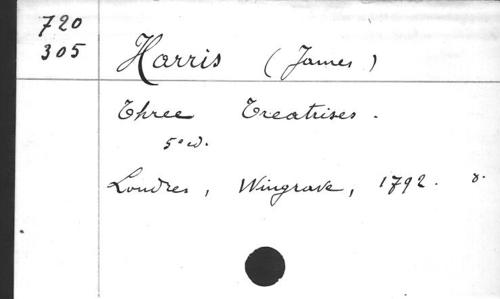 720
305
Harris (James)
Three Treatises.
5e ed.
Londres, Wingrave, 1792. 8.